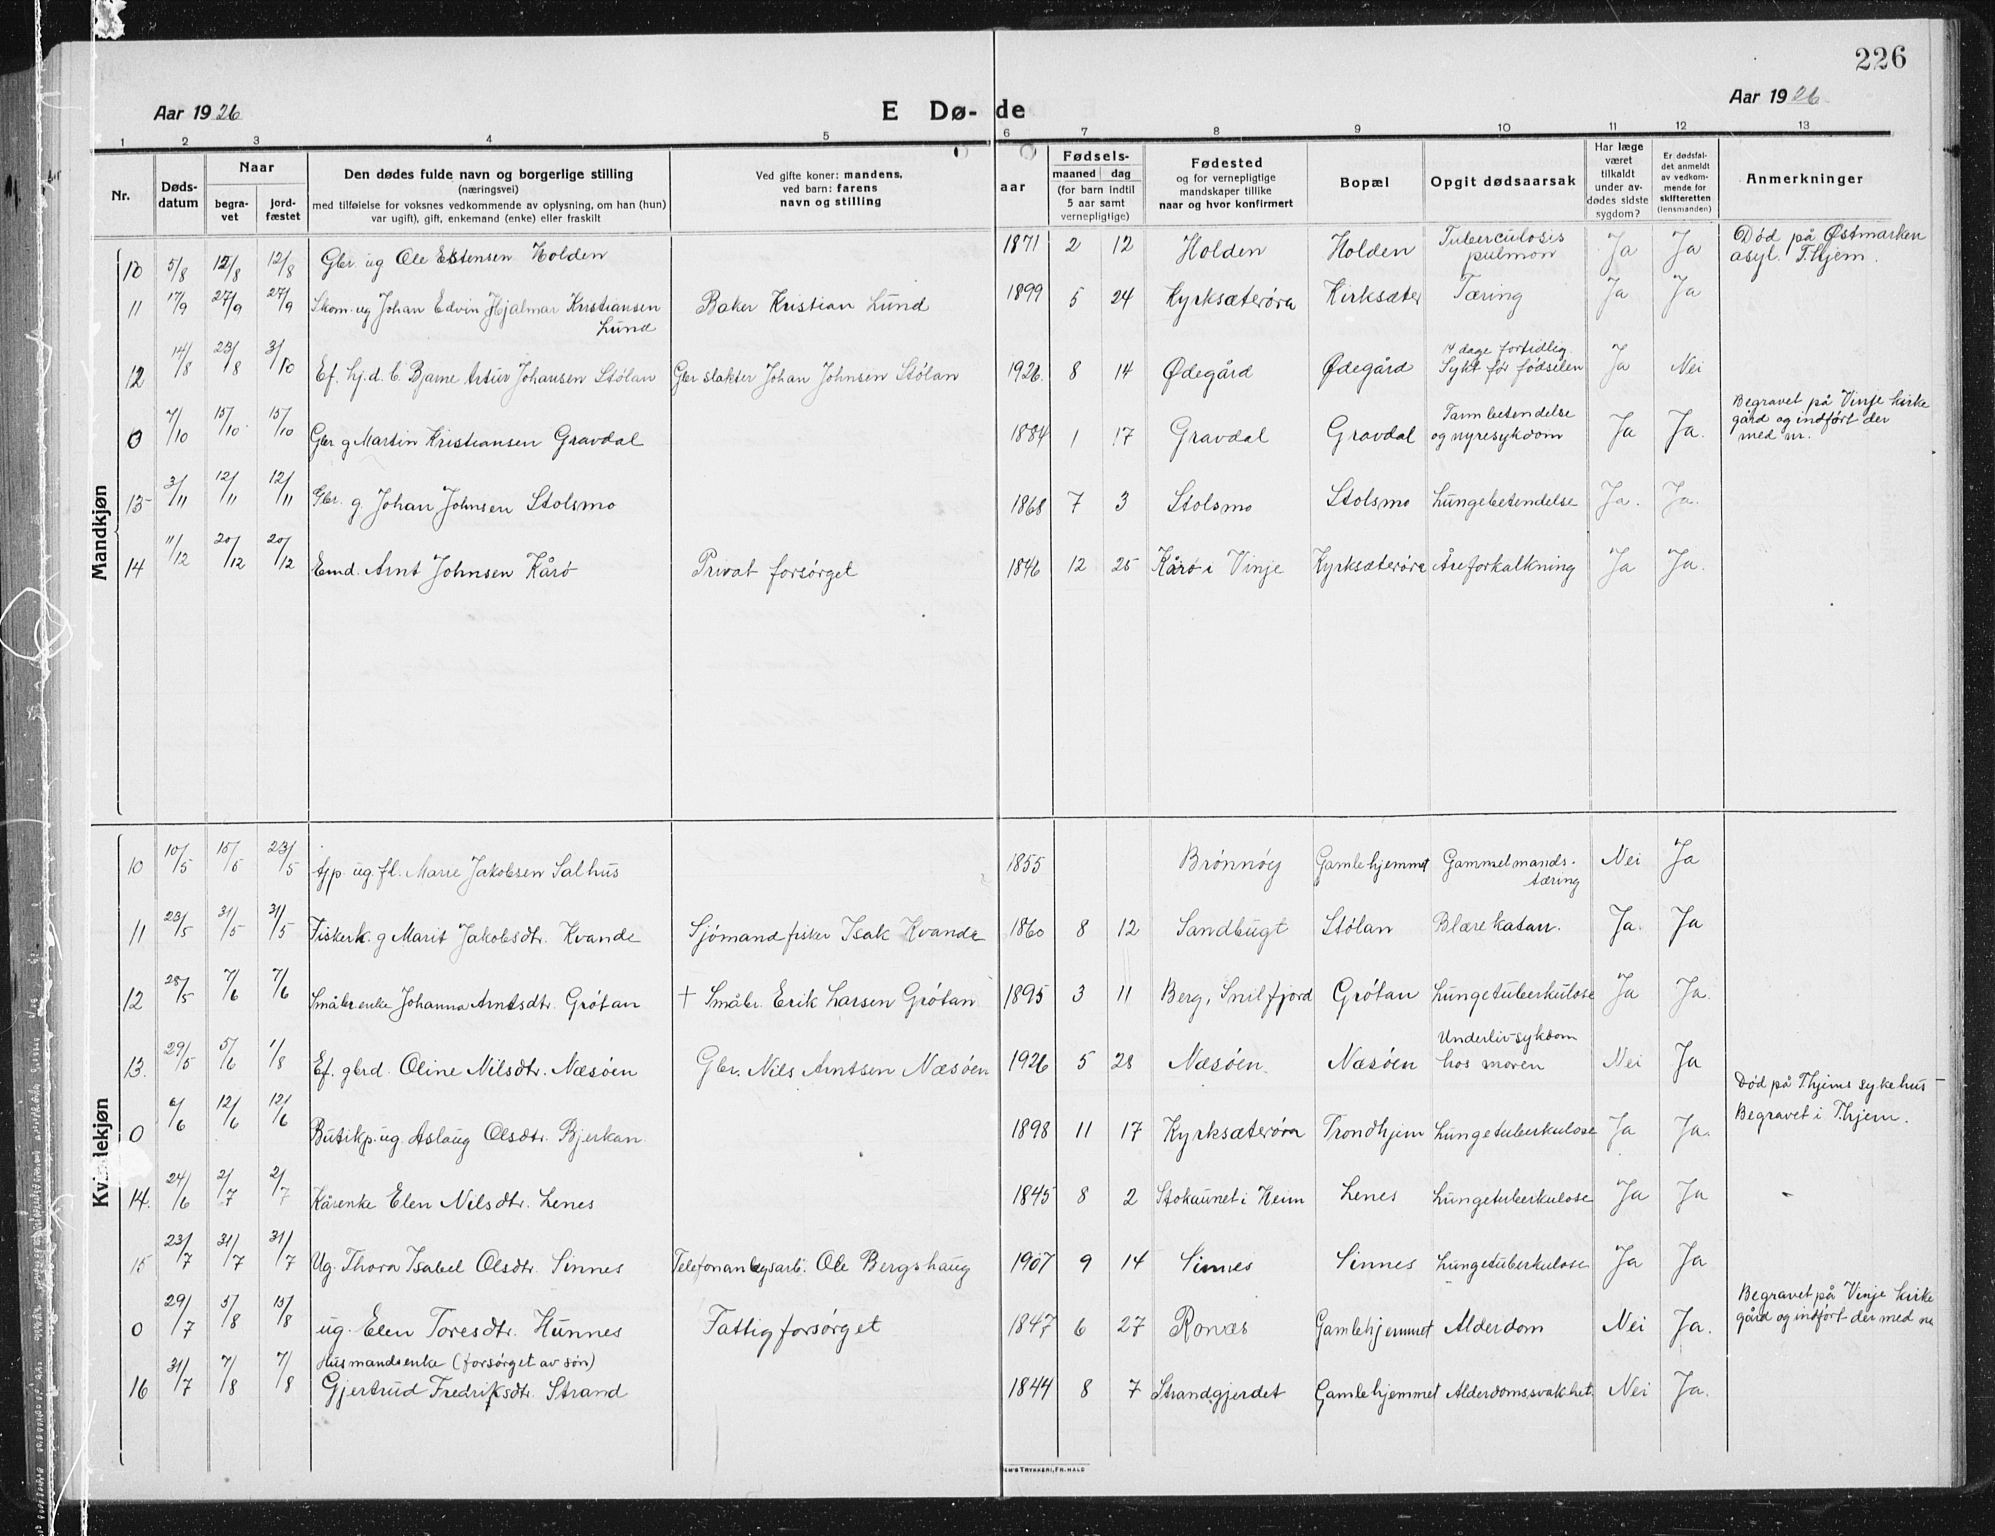 226
Aar 1926
E Dø- de
Aar 1926
1 2 3 4 5 6 7 8 9 10 11 12 13
Nr.
Døds-
datum
Naar
begra-
vet
jord-
fæstet
Den dødes fulde navn og borgerlige stilling
(næringsvei)
med tilføielse for voksnes vedkommende av oplysning, om han (hun)
var ugift), gift, enkemand (enke) eller fraskilt
Ved gifte koner: mandens,
ved barn: farens
navn og stilling
aar
Fødsels-
maaned dag
(for barn indtil
5 aar samt
vernepligtige)
Fødested
og for vernepligtige
mandskaper tillike
naar og hvor konfirmert
Bopæl
Opgit dødsaarsak
Har læge
været
tilkaldt
under av-
dødes sidste
sygdom?
Er dødsfal-
det anmeldt
av vedkom-
mende for
skifteretten
(lensmanden)
Anmerkninger
Mandkjøn
10 5/8 12/8 12/8 Gbr. ug Ole Estensen Holden 1871 2 12 Holden Holden Tuberculosis pulmon Ja Ja Død på Østmarken asyl. T.hjem.
11 17/9 27/9 27/9 Skom. ug Johan Edvin Hjalmar Kristiansen Lund Baker Kristian Lund 1899 5 24 Kyrksæterøra Kirksæter Tæring Ja Ja
12 14/8 23/8 3/10 Ef. hj.d. C. Bjarne Artur Johansen Stólan Gbr slakter Johan Johnsen Stólan 1926. 8 14 Ødegård Ødegård 14 dage fortidlig. Sykt før fødselen Ja Nei
0 7/10 15/10 15/10 Gbr g Martin Kristiansen Gravdal 1884 1 17 Gravdal Gravdal Tarmbetendelse og nyresykdom Ja Ja. Begravet på Vinje kirke gård og indført der med nr.
13 3/11 12/11 12/11 Gbr. g. Johan Johnsen Stolsmo 1868 7 3 Stolsmo Stolsmo Lungebetendelse Ja. Ja.
14 11/12 20/12 20/12 Emd. Arnt Johnsen Kårö Privat forsørget 1846 12 25 Kårö i Vinje Kyrksæterøra Åreforkalkning Ja Ja.
Kvindekjøn
10 10/5 15/5 23/5 Tjp. ug. fl. Marie Jakobsen Salhus 1855 Brønnøy Gamlehjemmet Gammelmands-tæring Nei Ja
11 23/5 31/5 31/5 Fiskerk. g Marit Jakobsdtr. Kvande Sjómand fisker Isak Kvande 1860 8 12 Sandbugt Stólan Blærekatarr. Ja. Ja
12 28/5 7/6 7/6 Småbr.enke Johanna Arntsdtr. Grótan + Småbr. Erik Larsen Grótan 1895 3 11 Berg, Snilfjord Grótan Lungetuberkulose Ja Ja.
13. 29/5 5/6 1/8 Ef. gbrd. Oline Nilsdtr. Næsóen Gbr. Nils Arntsen Næsóen 1926 5 28 Næsóen. Næsóen Underlivsykdom hos moren Nei Ja
0 6/6 12/6 12/6 Butikp. ug. Aslaug Olsdtr. Bjerkan. 1898 11 17 Kyrksæterøra Trondhjem Lungetuberkulose Ja Ja. Død på T.hjems sykehus - Begravet i T.hjem.
14. 24/6 2/7 2/7 Kårenke Elen Nilsdtr. Lenes 1845 8 2 Stokaunet i Heim Lenes Lungetuberkulose Ja Ja -
15 23/7 31/7 31/7 Ug. Thora Isabel Olsdtr. Sinnes Telefonanlegsarb. Ole Bergshaug 1907 9 14 Sinnes Sinnes Lungetuberkulose Ja Ja
0 29/7 5/8 15/8 ug. Elen Toresdtr. Hunnes Fattigforsørget 1847 6 27 Ronæs Gamlehjemmet Alderdom Nei Ja. Begravet på Vinje kirke gård og indført der med nr
16 31/7 7/8 7/8 Husmandsenke (forsørget av søn) Gjertrud Fredriksdtr. Strand 1844 8 7 Strandgjerdet Gamlehjemmet Alderdomssvakhet. Nei Ja.
EM'S TRYKKERI, FR. HALD